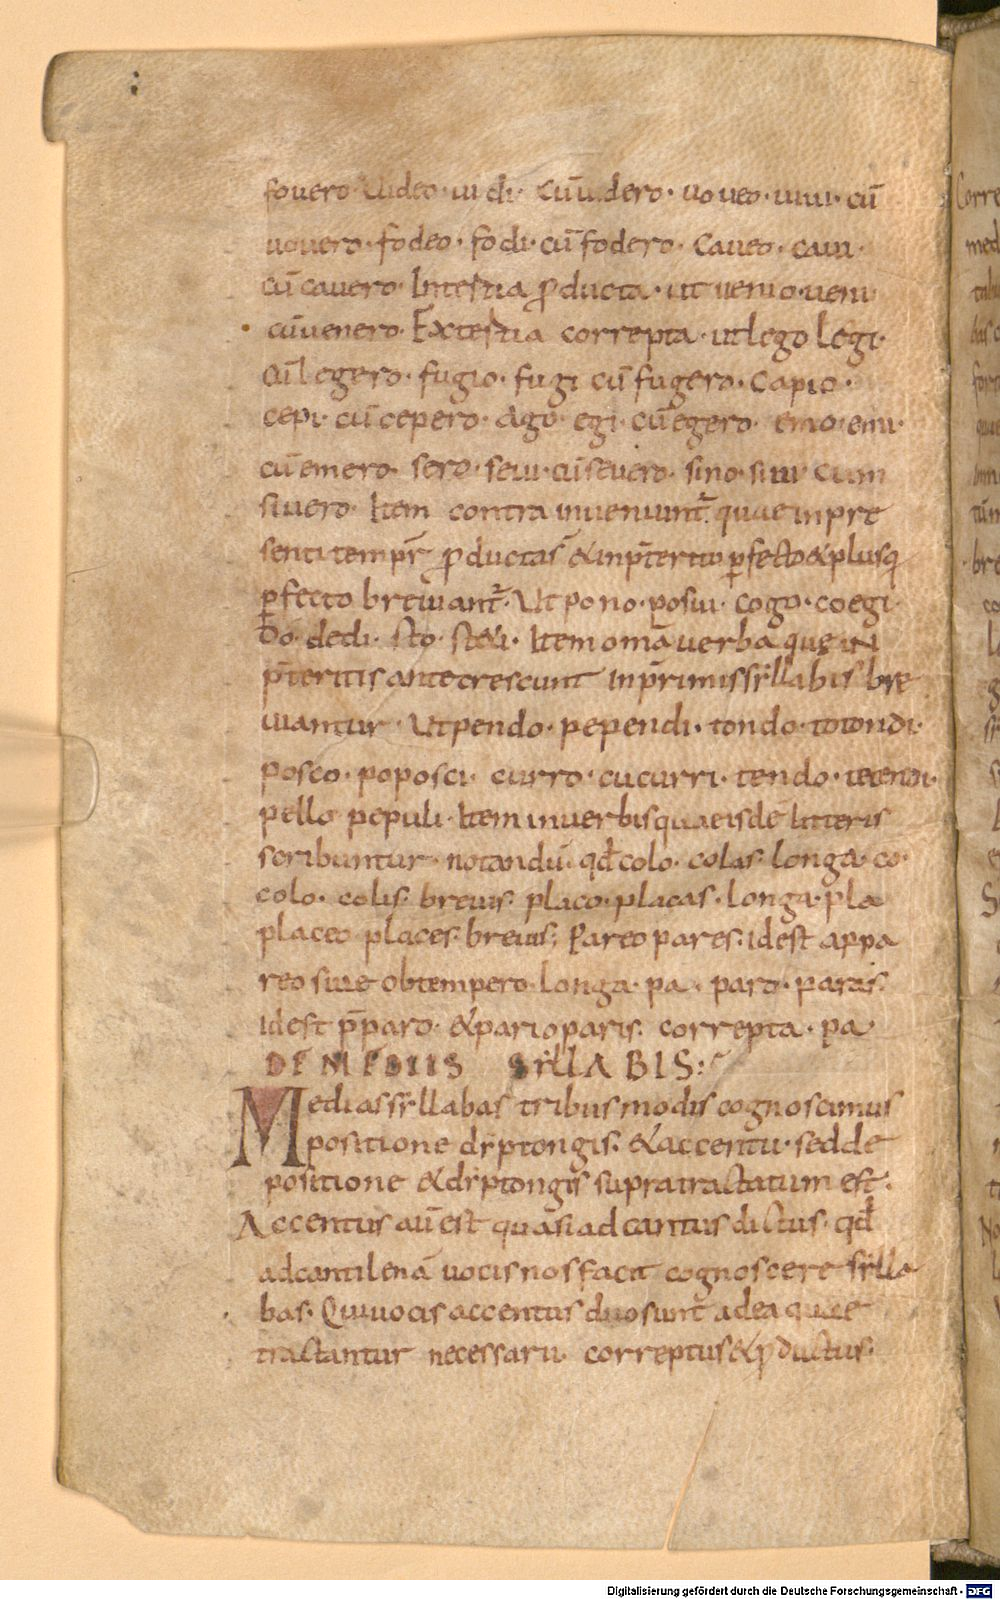 fouero· Uideo· uidi· Cūuidero· uoueo· uoui· cū
uouero· fodeo· fodi· cūfodero· Caueo· caui·
cūcauero· Intertia ꝓducta· ut uenio· ueni·
cūuenero· Extertia correpta· utlego legi·
Cūlegero· fugio· fugi cūfugero· Capio·
cepi· cūcepero· Ago· egi· cūegero· emo· emi·
cūemero· sero· seui· cūseuero· sino· siui Cum
siuero· Item contra inueniunt̄· quae inpre
senti tempr̄ ꝓductas &inp̄terito ꝑfecto &plusq
ꝑfecto breuiant̄· Ut pono· posui· cogo· coegi·
Do· dedi· sto· steti· Item omā uerba que in
p̄teritis ante crescunt In primis syllabis bre
uiantur· Ut pendo· pependi· tondo· totondi·
posco· poposci· curro· cucurri· tendo· tetendi·
pello pepuli· Item in uerbis quae eisdē litteris
scribuntur· notandū· qđ colo· colas· longa· co·
colo· colis· breuis· placo· placas· longa· pla
placeo places· breuis; Pareo pares· idest appa
reo siue obtempero· longa· pa· paro· paras·
idest p̄paro· &pario paris· correpta· pa·
DE MEDIIS SYLLABIS:
Medias syllabas tribus modis cognoscimus
positione dyptongis· &accentu· sed de
positione &dyptongis supra tractatum est·
Accentus aūest quasi ad cantus dictus· qđ
ad cantilenā uocis nos facit cognoscere sylla
bas· Qui uocis accentus duo sunt ad ea quae
tractantur necessarii· correptus &ꝓductus·
Digitalisierung gefördert durch die Deutsche Forschungsgemeinschaft - DFG